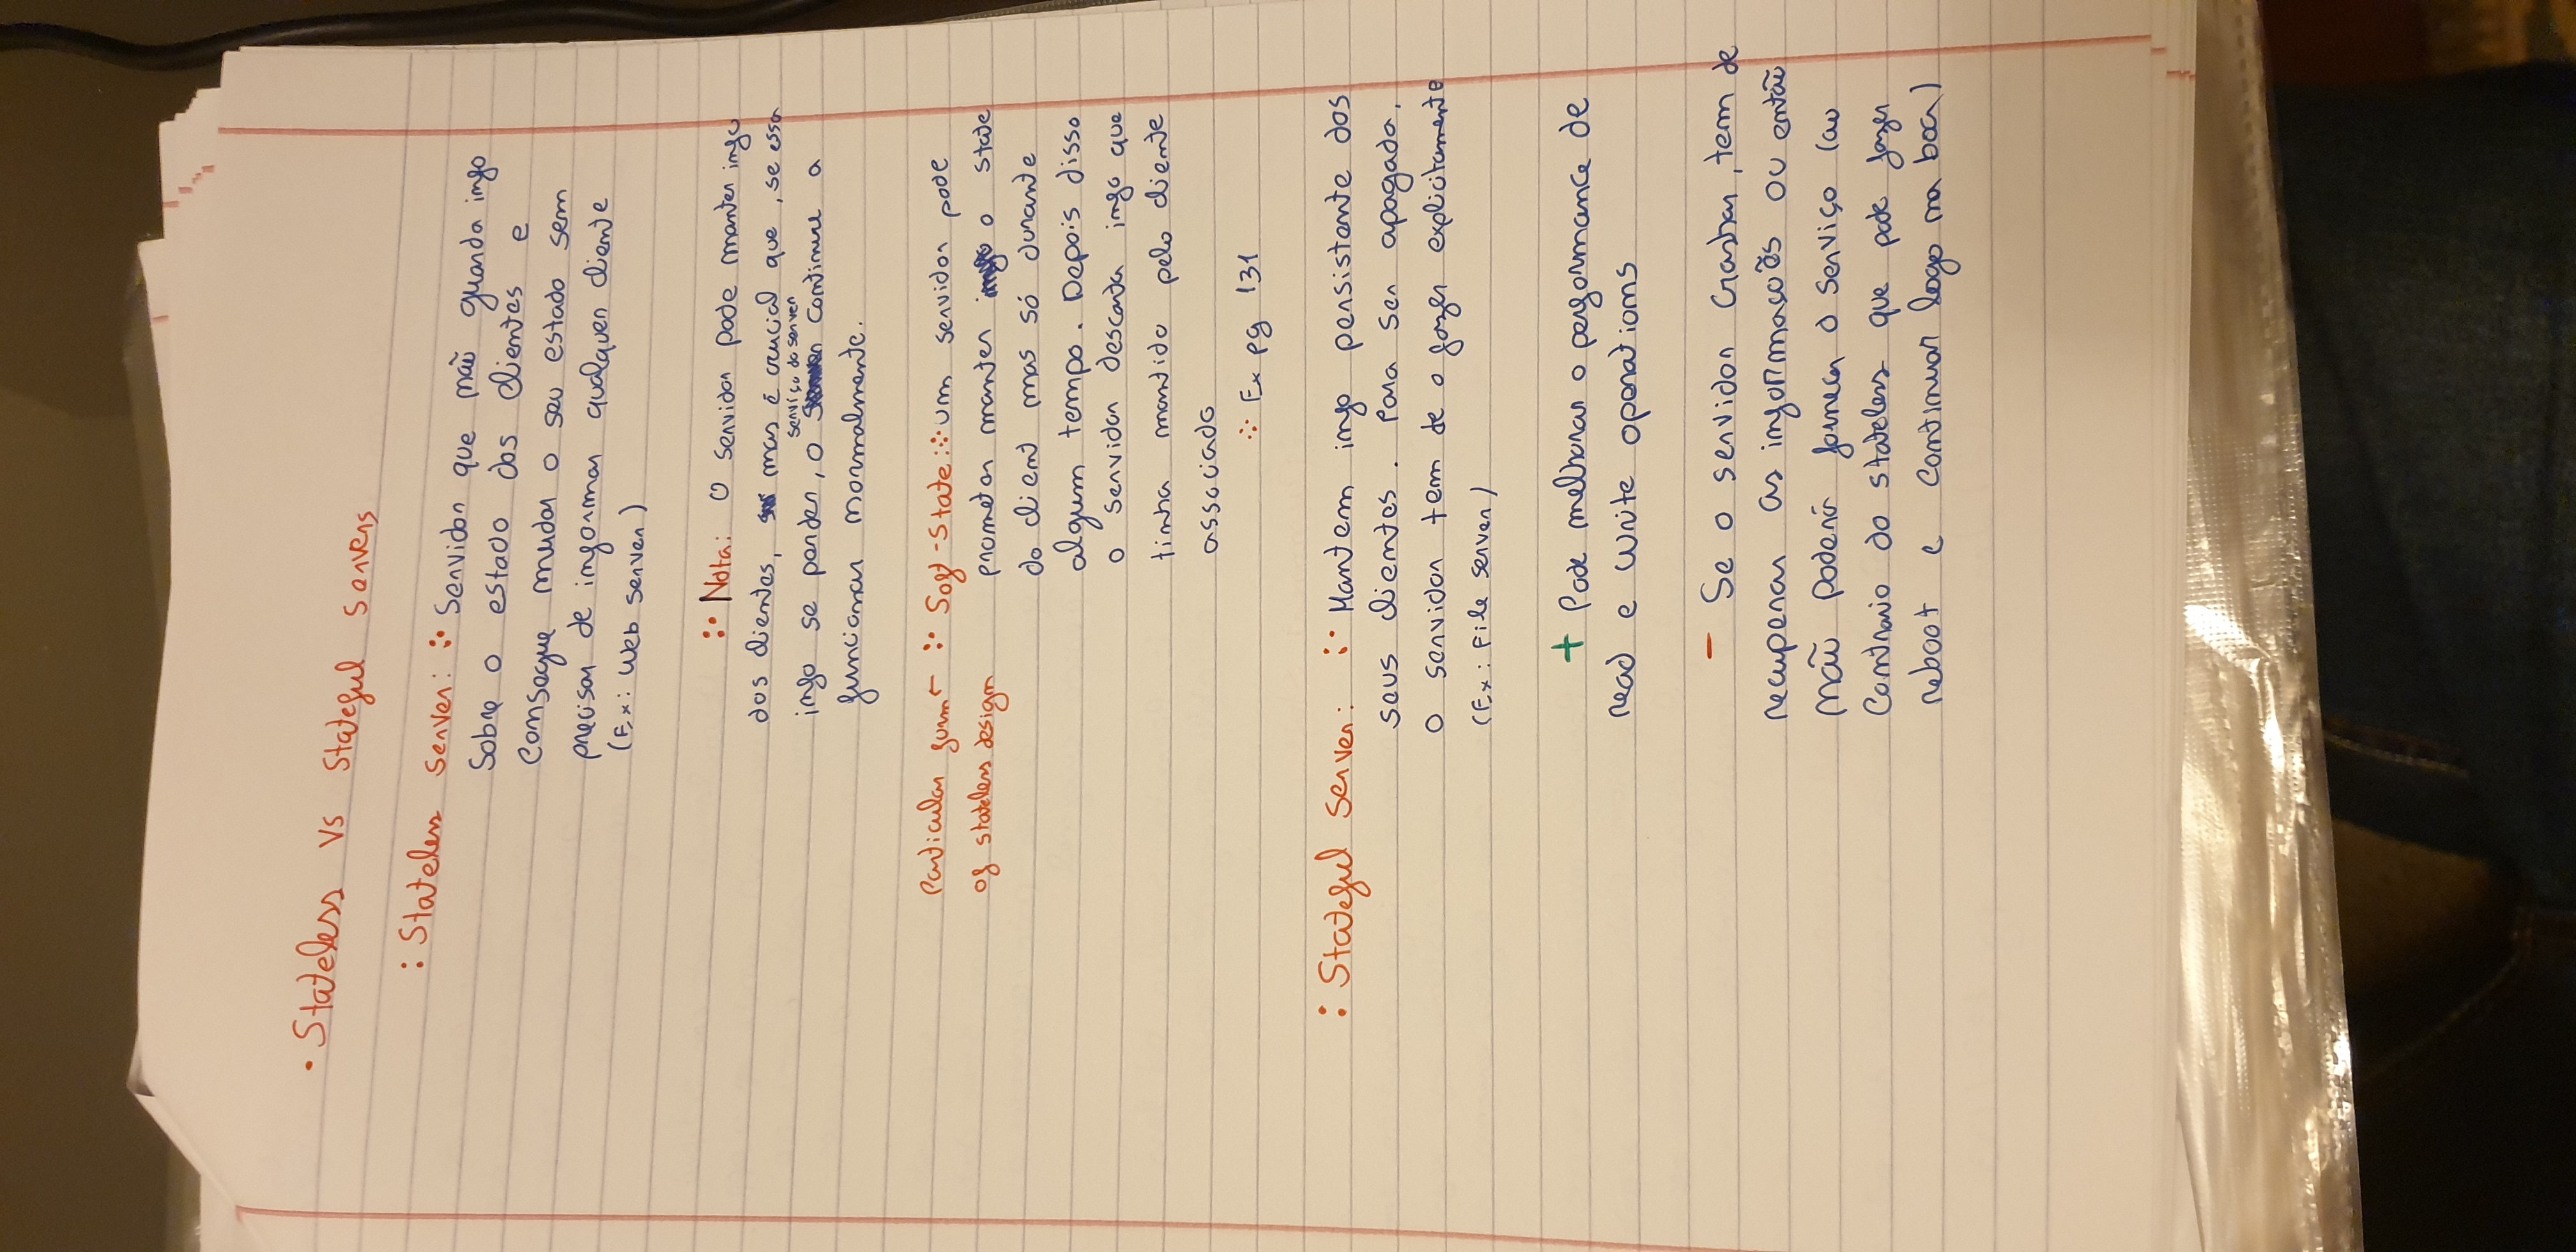 • Stateless vs Stateful servers
: Stateless server: :• Servidor que não guarda info
sobre o estado dos clientes e
consegue mudar o seu estado sem
precisar de informar qualquer cliente
(Ex: Web server)
:• Nota: O servidor pode manter info
dos clientes, mas é crucial que, se essa
serviço do server
info se perder, o continue a
funcionar normalmente.
Particular form ← :• Soft-State: :: um servidor pode
of stateless design prometer manter o state
do client mas só durante
algum tempo. Depois disso
o servidor descarta info que
tinha mantido pelo cliente
associado
:: Ex pg 131
: Stateful server: :• Mantem info persistente dos
seus clientes. Para ser apagada,
o servidor tem de o fazer explicitamente
(Ex: File server)
+ Pode melhorar o performance de
read e write operations
- Se o servidor Crashar, tem de
recuperar as informacões ou então
não poderá fornecer o serviço (ao
Contrario do stateless que pode fazer
reboot e continuar logo na boa)